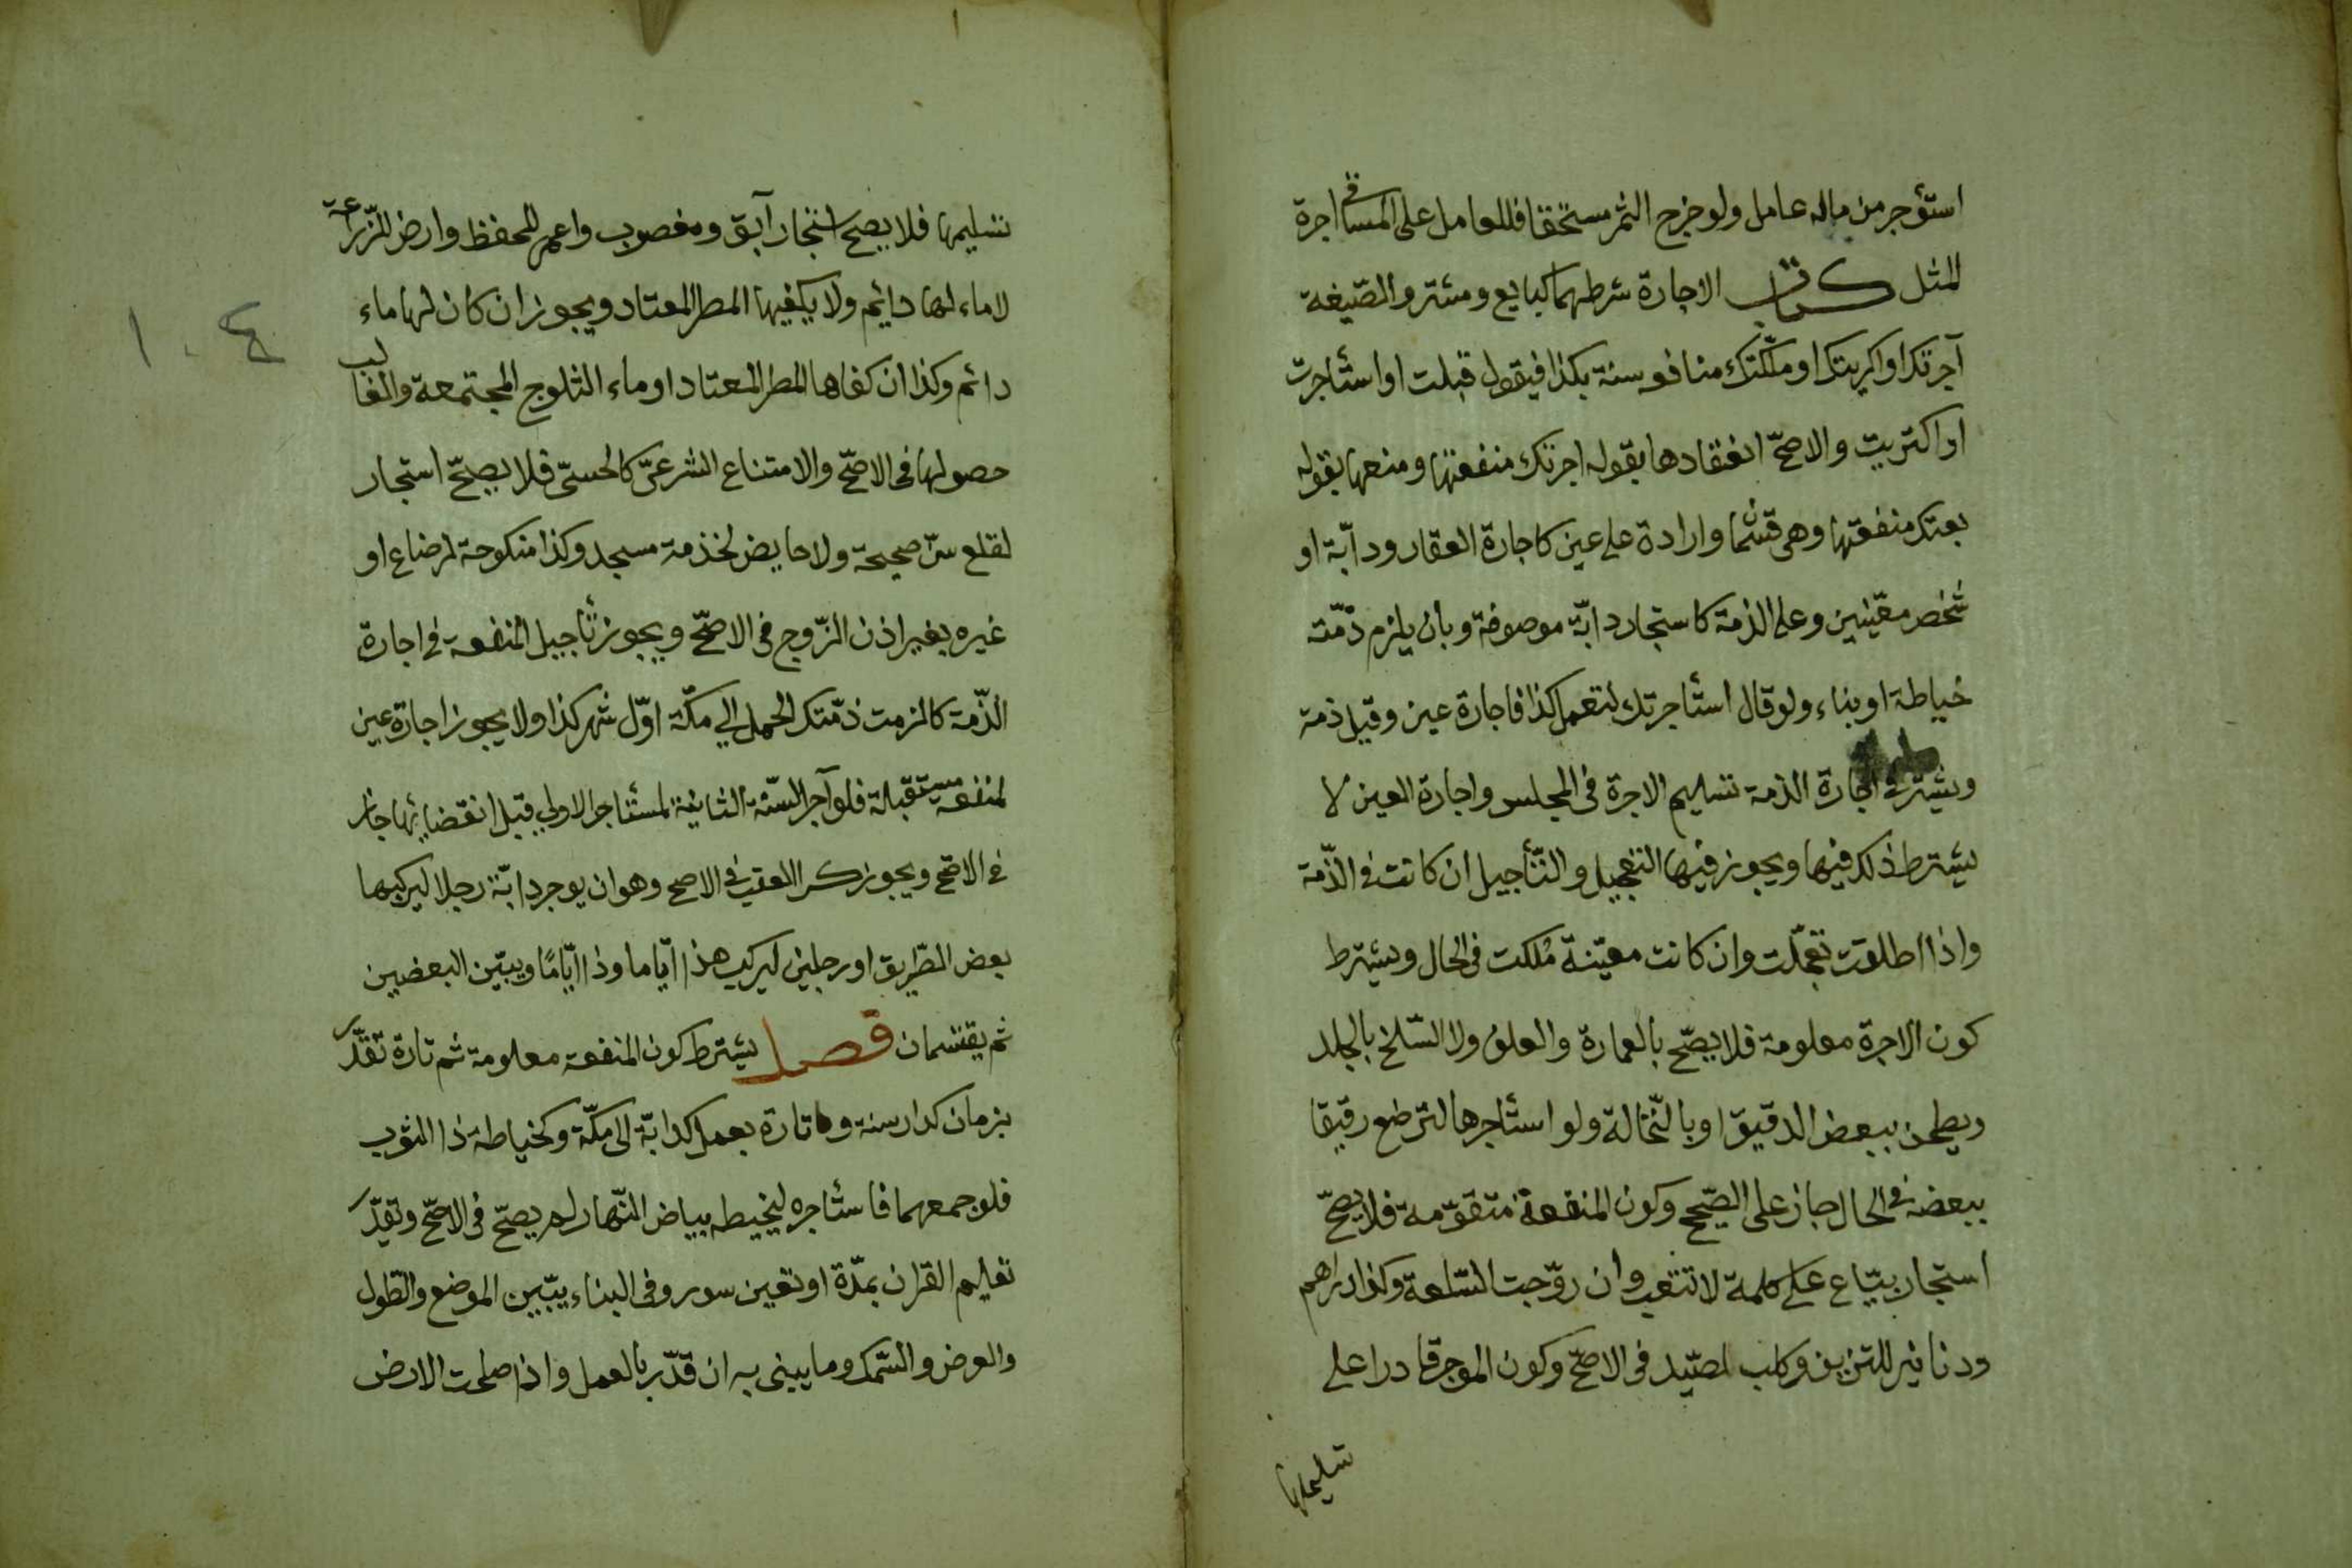 استؤجر من ماله عامل ولو خرج الثمر مستحقا فللعامل على المساقي اجرة
المثل كتاب الاجارة شرطهما كبايع ومشتر والصّيغة
آجرتك او اكريتك او ملّكتك منافعه سنة بكذا فيقول قبلت او استأجرت
او اكتريت والاصحّ انعقادها بقوله اجرتك منفعتها ومنعها بقوله
بعتك منفعتها وهى قسمان واردة على عين كاجارة العقار ودابّة او
شخص معيّنين وعلى الذمة كاستجار دابّة موصوفة وبان يلزم ذمّته
خياطة او بناء ولو قال استأجرتك لتعمل كذا فاجارة عين وقيل ذمة
ويشترط فى اجارة الذمة تسليم الاجرة فى المجلس واجارة العين لا
يشترط ذلك فيها ويجوز فيها التعجيل والتّأجيل ان كانت فى الذّمة
واذا اطلقت تعجّلت وان كانت معيّنة مُلكت فى الحال ويشترط
كون الاجرة معلومة فلا يصّح بالعمارة والعلف ولا السّلخ بالجلد
ويطحن ببعض الدقيق او بالنّخالة ولو استأجرها لترضع رقيقا
ببعضه فى الحال جاز على الصّحيح وكون المنفعة متقوّمة فلا يصحّ
استجار بيّاع على كلمة لا تتعب وان روّجت السّلعة وكذا دراهم
ودنانير للتزيين وكلب لصّيد فى الاصحّ وكون الموجر قادرا على
تسليمها
تسليمها فلا يصح استجار آبق ومغصوب واعمى للحفظ وارض للزّراعة
لا ماء لها دايم ولا يكفيها المطر المعتاد ويجوز ان كان لها ماء
دائم وكذا ان كفاها المطر المعتاد او ماء الثلوج المجتمعة والغالب
حصولها فى الاصّح والامتناع الشرعىّ كالحسىّ فلا يصحّ استجار
لقلع سنّ صحيحة ولا حايض لخذمة مسجد وكذا منكوحة لرضاع او
غيره بغير اذن الزّوج فى الاصحّ ويجوز تأجيل المنفعة فى اجارة
الذّمة كالزمت ذمّتك الحمل الي مكّة اوّل شهر كذا ولا يجوز اجارة عين
لمنفعة مستقبلة فلو آجر السّنة الثانية لمستأجر الاولي قبل انقضايها جاز
فى الاصّح ويجوز كر العقب فى الاصح وهو ان يوجر دابّة رجلا ليركبها
بعض الطّريق او رجلين ليركب هذا ايّاما وذا ايّامًا ويبيّن البعضين
ثم يقتسمان فصل يشترط كون المنفعة معلومة ثم تارة تقدّر
بزمان كدار سنة و تارة بعمل كدابّة الى مكّة وكخياطة ذا الثوب
فلو جمعهما فاستأجره ليخيطه بياض النّهار لم يصحّ فى الاصّح وتقدّر
تعليم القران بمدّة او تعين سور وفى البناء يبّين الموضع والطول
والعرض والسّمك وما يبنى به ان قدّر بالعمل واذا صلحت الارض
١٠٤